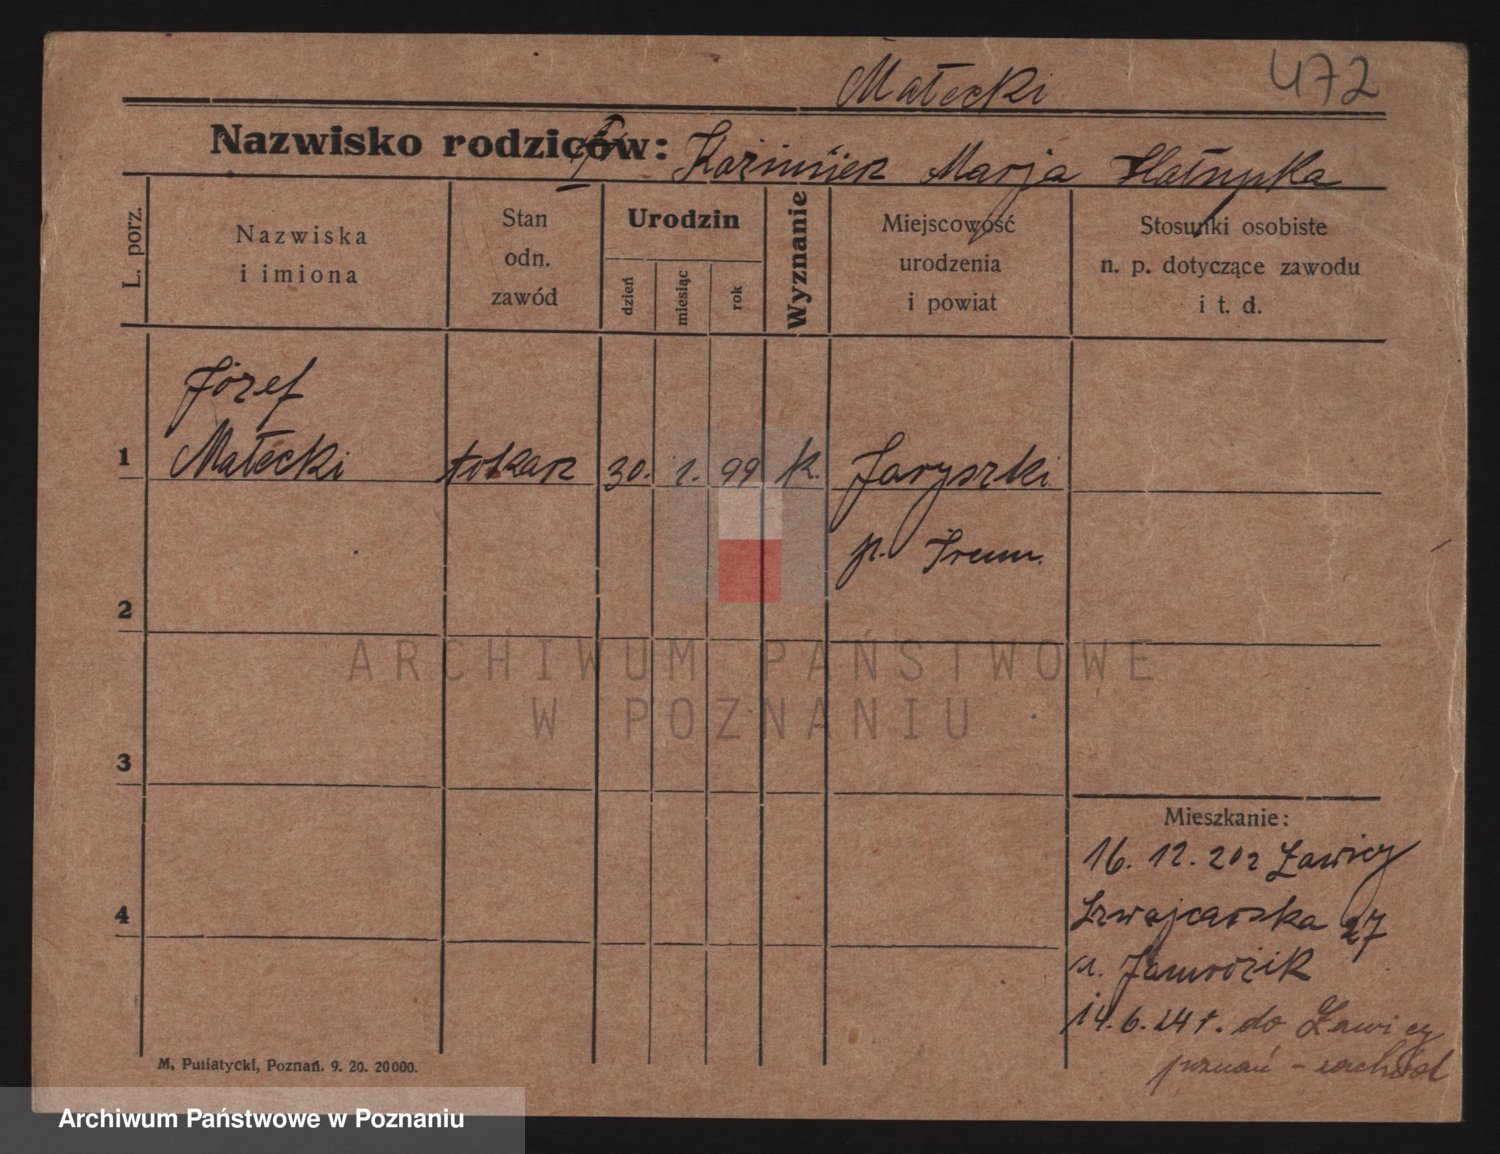 Małecki
472
Nazwisko rodziców: Kazimierz Marja Hałupka
L. porz.
Nazwiska
i imiona
Stan
odn.
zawód
Urodzin
dzień
miesiąc
rok
Wyznanie
Miejscowość
urodzenia
i powiat
Stosunki osobiste
n. p. dotyczące zawodu
i t. d.
Józef
1 Małecki tokarz 30. 1. 99 k. Jaryszki
p. Śrem.
2
ARCHIWUM PAŃSTWOWE
W POZNANIU
3
Mieszkanie:
16. 12. 20 z Ławicy
4
Szwajcarska 27
u. Jaworzik
14. 6. 24 t. do Ławicy
poznań - zachód
M. Putiatycki, Poznań. 9. 20. 20000.
Archiwum Państwowe w Poznaniu